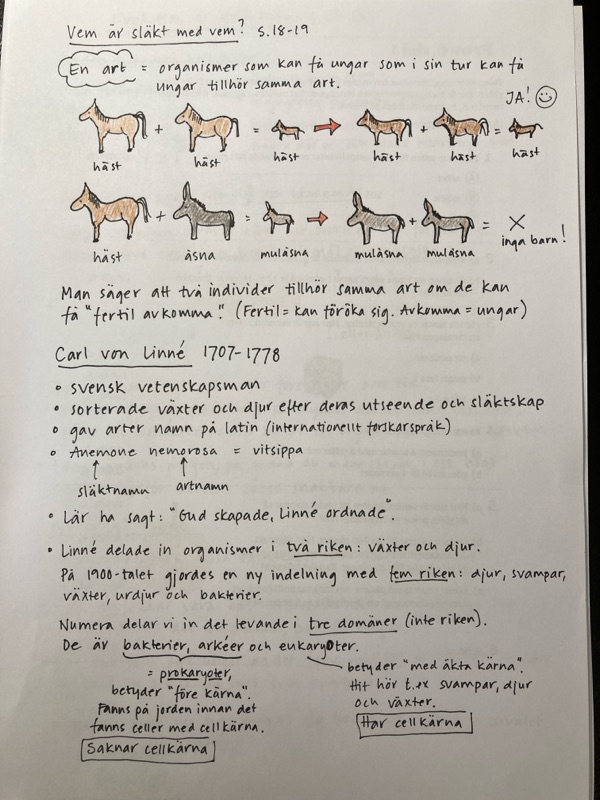 Vem är släkt med vem? S.18-19
En art = organismer som kan få ungar som i sin tur kan få
ungar tillhör samma art.
JA!
+ = → + =
häst häst häst häst häst häst
+ = → + = X
häst åsna mulåsna mulåsna mulåsna inga barn!
Man säger att två individer tillhör samma art om de kan
få "fertil avkomma." (Fertil = kan föröka sig. Avkomma = ungar)
Carl von Linné 1707-1778
• svensk vetenskapsman
• sorterade växter och djur efter deras utseende och släktskap
• gav arter namn på latin (internationellt forskarspråk)
• Anemone nemorosa = vitsippa
↑ ↑
släktnamn artnamn
• Lär ha sagt: "Gud skapade, Linné ordnade".
• Linné delade in organismer i två riken: växter och djur.
På 1900-talet gjordes en ny indelning med fem riken: djur, svampar,
växter, urdjur och bakterier.
Numera delar vi in det levande i tre domäner (inte riken).
De är bakterier, arkéer och eukaryoter.
= prokaryoter,
betyder "före kärna".
Fanns på jorden innan det
fanns celler med cellkärna.
Saknar cellkärna
betyder "med äkta kärna".
Hit hör t.ex svampar, djur
och växter.
Har cellkärna